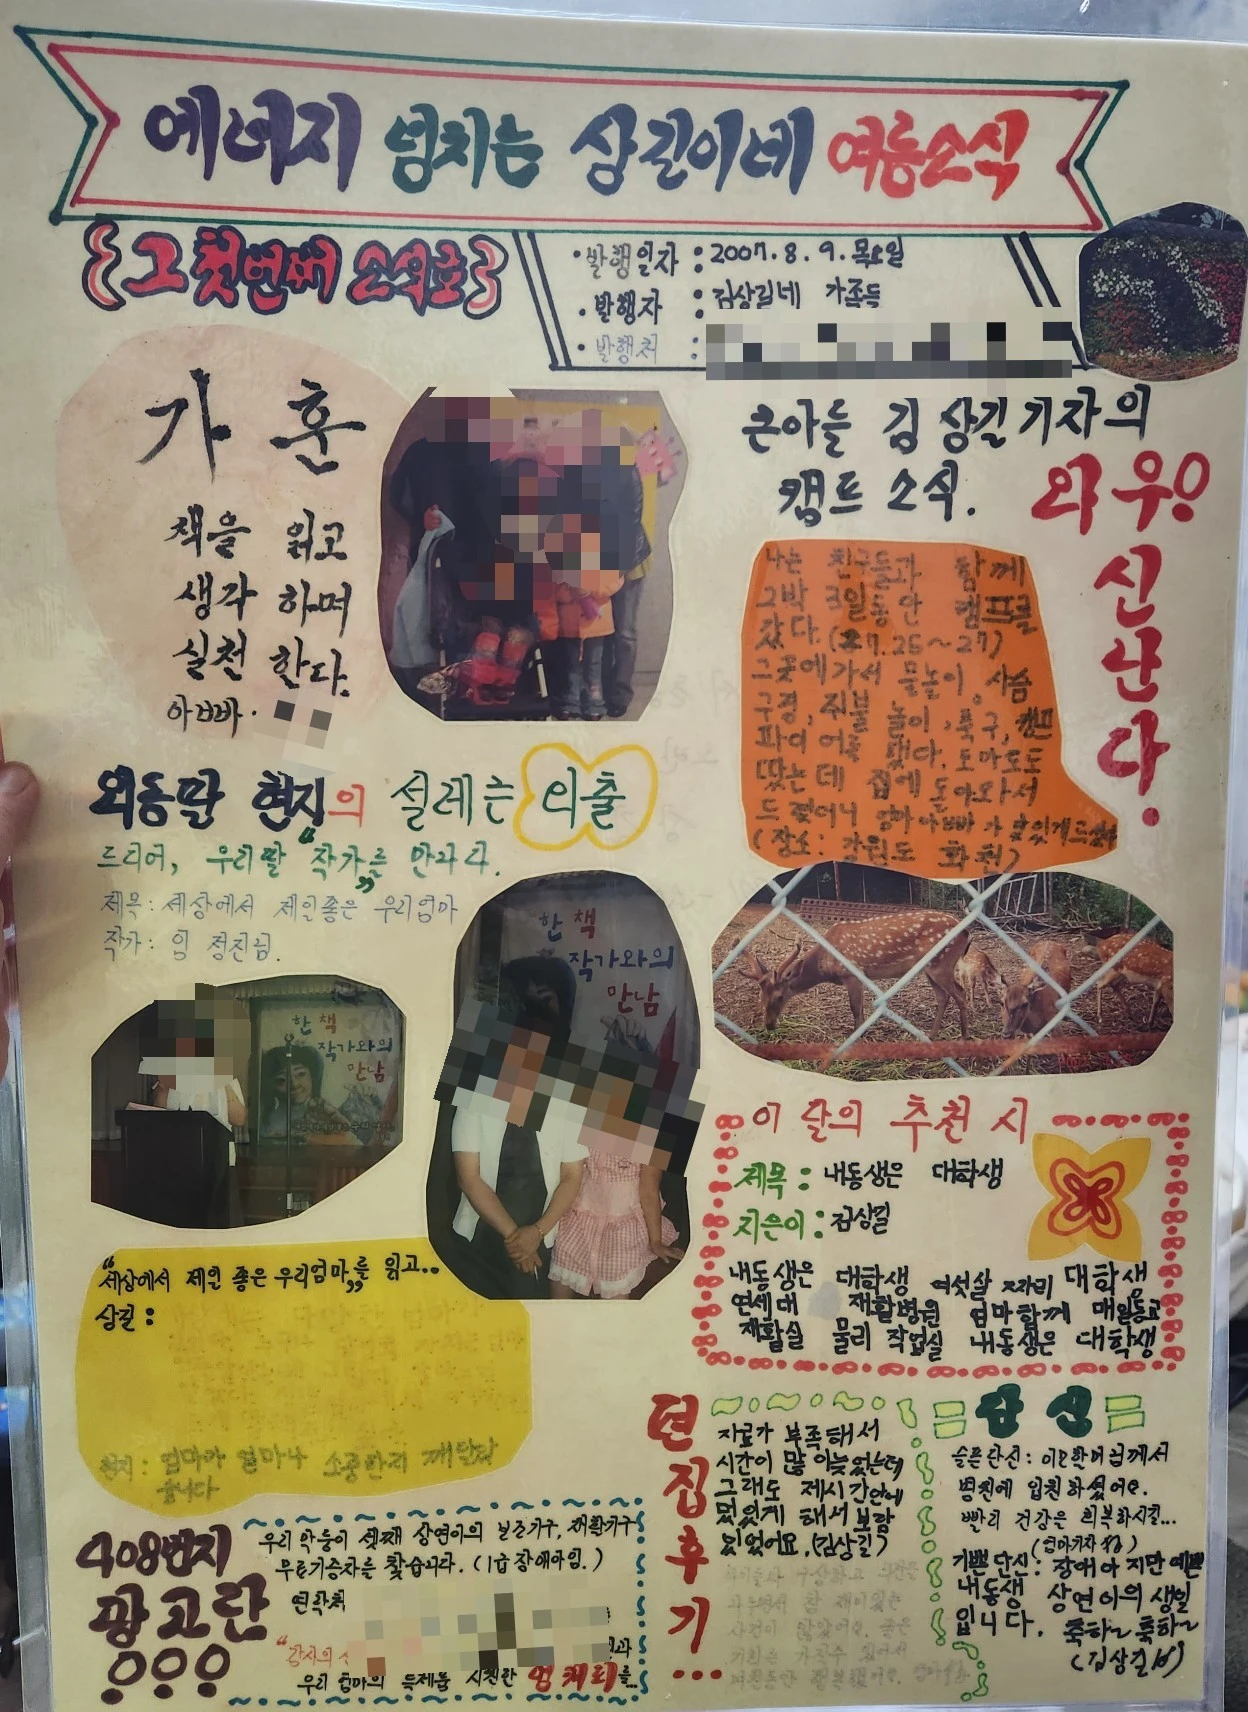 에너지 넘치는 상길이네 여름소식
그 첫번째 소식호
• 발행일자 : 2007. 8. 9. 목요일
• 발행자 : 김상길네 가족들
• 발행처 :
가 훈
책을 읽고
생각 하며
실천 한다.
아빠 ·
큰아들 김상길기자의
캠프 소식.
와우!
신
난
다.
나는 친구들과 함께
2박 3일동안 캠프를
갔다. (7.25~27)
그곳에가서 물놀이, 사슴
구경, 쥐불 놀이, 축구, 캠프
파이어를 했다. 토마토도
땄는데 집에 돌아와서
드렸더니 엄마 아빠가 맛있게
(장소: 강원도 화천)
외동딸 현지의 설레는 외출
드디어, 우리딸 "작가"를 만나다.
제목: 세상에서 제일좋은 우리엄마
작가: 임 정진님.
한 책
작가와의
만남
한 책
작가와의
만남
"세상에서 제일 좋은 우리엄마"를 읽고..
상길 :
현지 : 엄마가 얼마나 소중한지 깨달았
습니다
이 달의 추천 시
제목 : 내동생은 대학생
지은이 : 김상길
내동생은 대학생 여섯살 짜리 대학생
연세대 재활병원 엄마함께 매일등교
재활실 물리 작업실 내동생은 대학생
편
집
후
기
...
자료가 부족해서
시간이 많 이늦었는데
그래도 제시간안에
멋있게 해서 보람
있었어요. (김상길)
단 신
슬픈단신: 이모할머님께서
병원에 입원하셨어요.
빨리 건강을 회복하시길...
기쁜단신: 장애아 지만 예쁜
내동생 상연이의 생일
입니다. 축하~ 축하~
408번지
광고란
우리 막둥이 셋째 상연이의 보조기구, 재활기구
무료기증자를 찾습니다. (1급 장애아임.)
연락처
"감사의
우리 엄마의